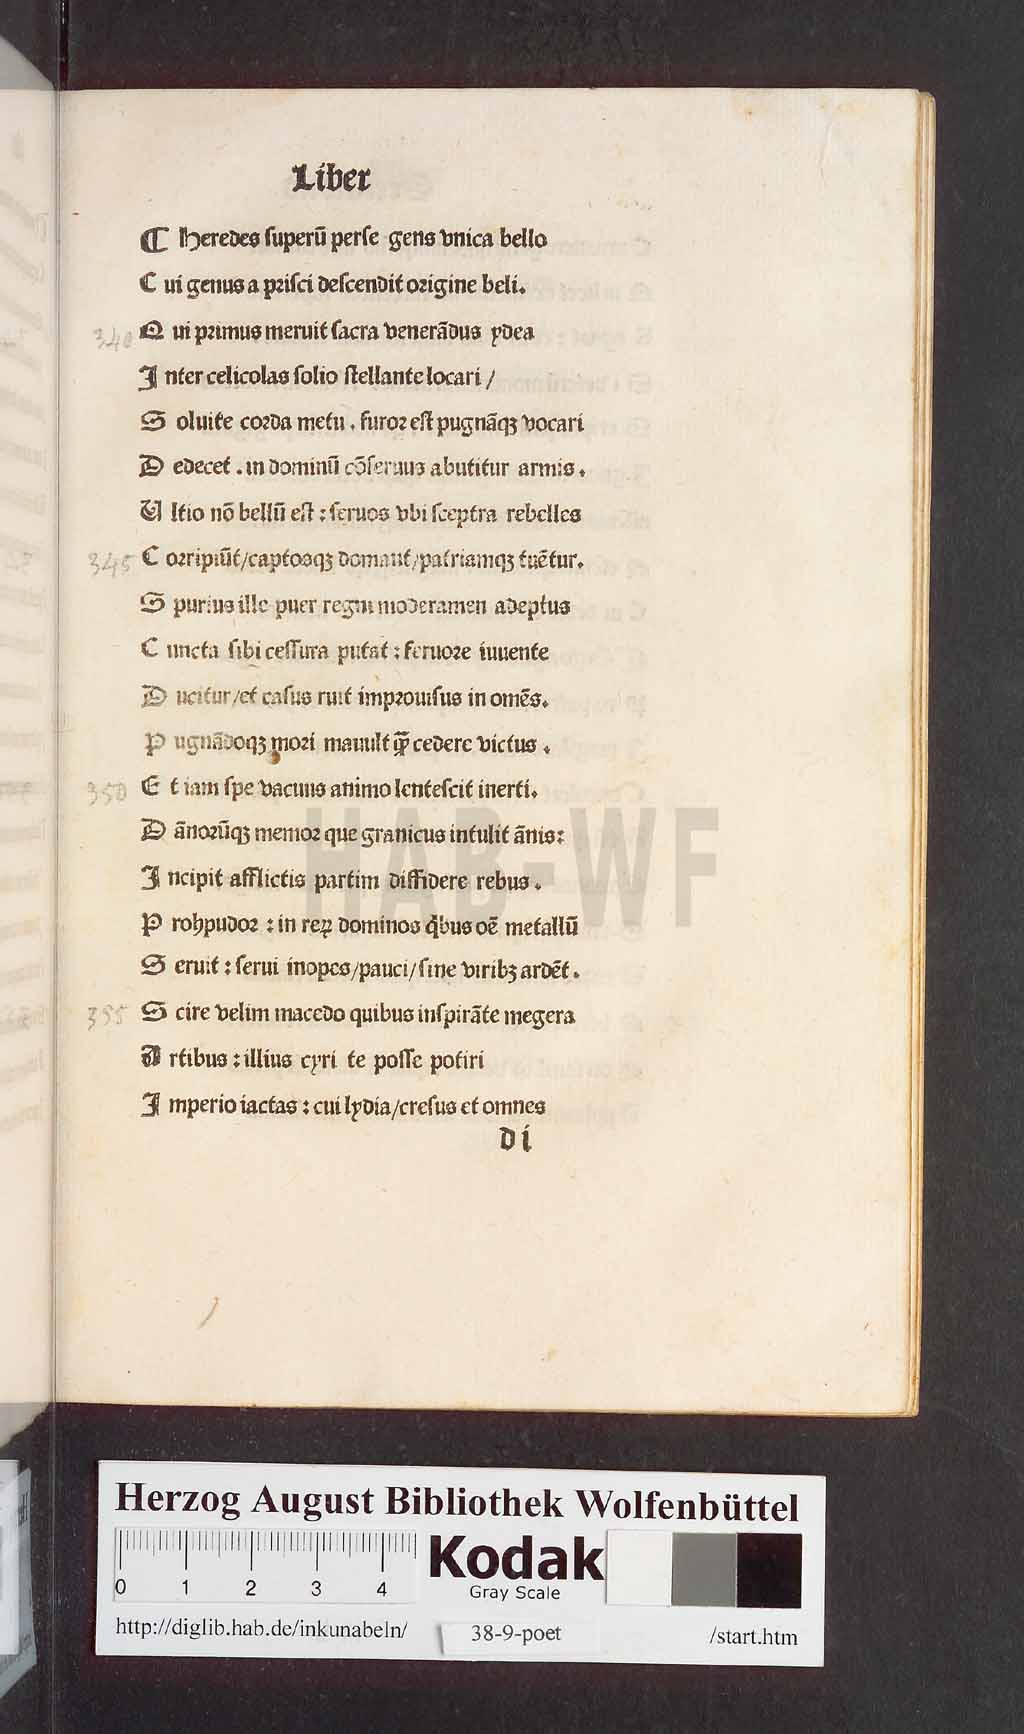 Liber
¶ Heredes superū perse gens vnica bello
C ui genus a prisci descendit origine beli.
340 Q ui primus meruit sacra venerādus ydea
I nter celicolas solio stellante locari /
S oluite corda metu . furor est pugnāqꝫ vocari
D edecet . in dominū cōseruus abutitur armis .
U ltio nō bellū est : seruos vbi sceptra rebelles
345 C orripiūt/captosqꝫ domant/patriamqꝫ tuētur.
S purius ille puer regni moderamen adeptus
C uncta sibi cessura putat : feruore iuuente
D ucitur/et casus ruit improuisus in omēs.
P ugnādoqꝫ mori mauult ꝙ̄ cedere victus .
350 E t iam spe vacuus animo lentescit inerti.
D ānorūqꝫ memor que granicus intulit ānis:
I ncipit afflictis partim diffidere rebus .
P rohpudor : in reꝝ dominos q̇bus oē metallū
S eruit : serui inopes/pauci/sine viribꝫ ardēt .
355 S cire velim macedo quibus inspirāte megera
A rtibus : illius cyri te posse potiri
I mperio iactas : cui lydia/cresus et omnes
d i
HAB-WF
Herzog August Bibliothek Wolfenbüttel
0 1 2 3 4
Kodak
Gray Scale
http://diglib.hab.de/inkunabeln/ 38-9-poet /start.htm